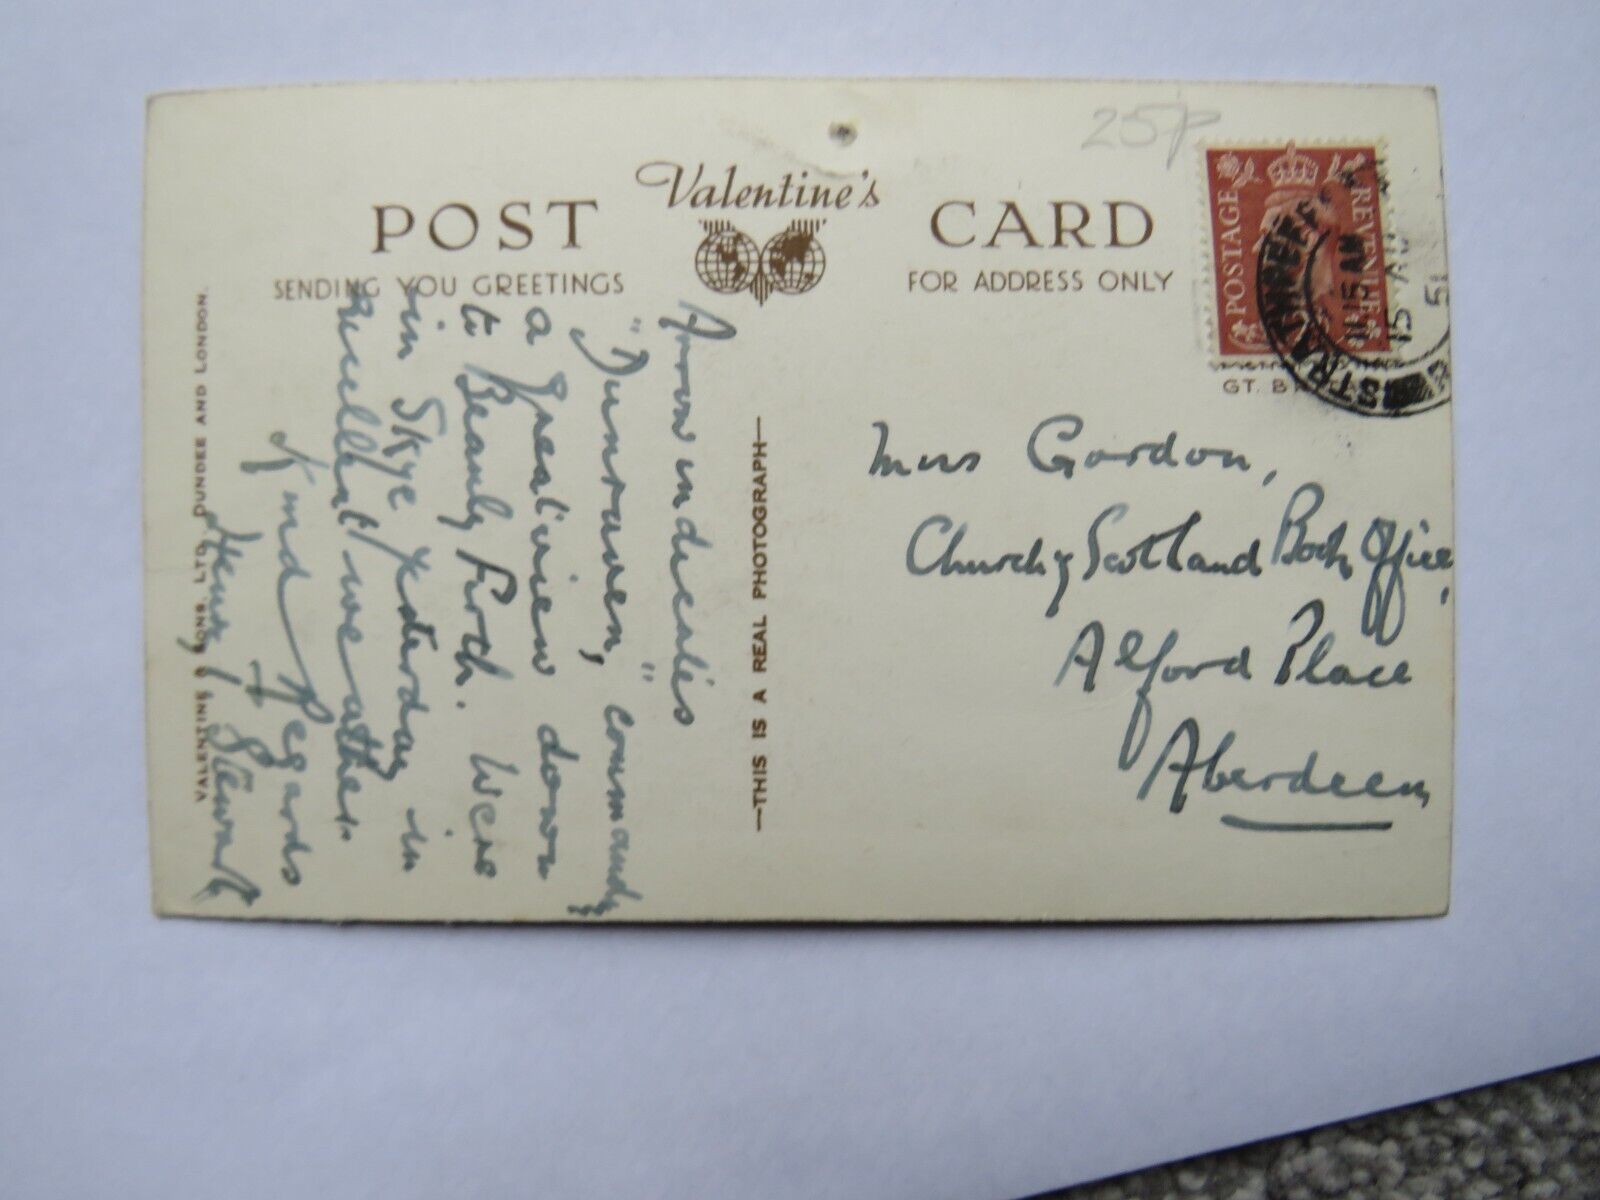 25p
Valentine's
POST CARD
SENDING YOU GREETINGS
FOR ADDRESS ONLY
POSTAGE REVENUE
11.15 AM
15 AU
51
GT. B
Arrow indicates
"Dunraven," commands
a great view down
to Beauly Firth. Were
in Skye yesterday in
Brilliant weather.
Kind Regards
Henry J Stewart
—THIS IS A REAL PHOTOGRAPH—
VALENTINE & SONS, LTD., DUNDEE AND LONDON.
Miss Gordon,
Church of Scotland Book Office,
Alford Place
Aberdeen